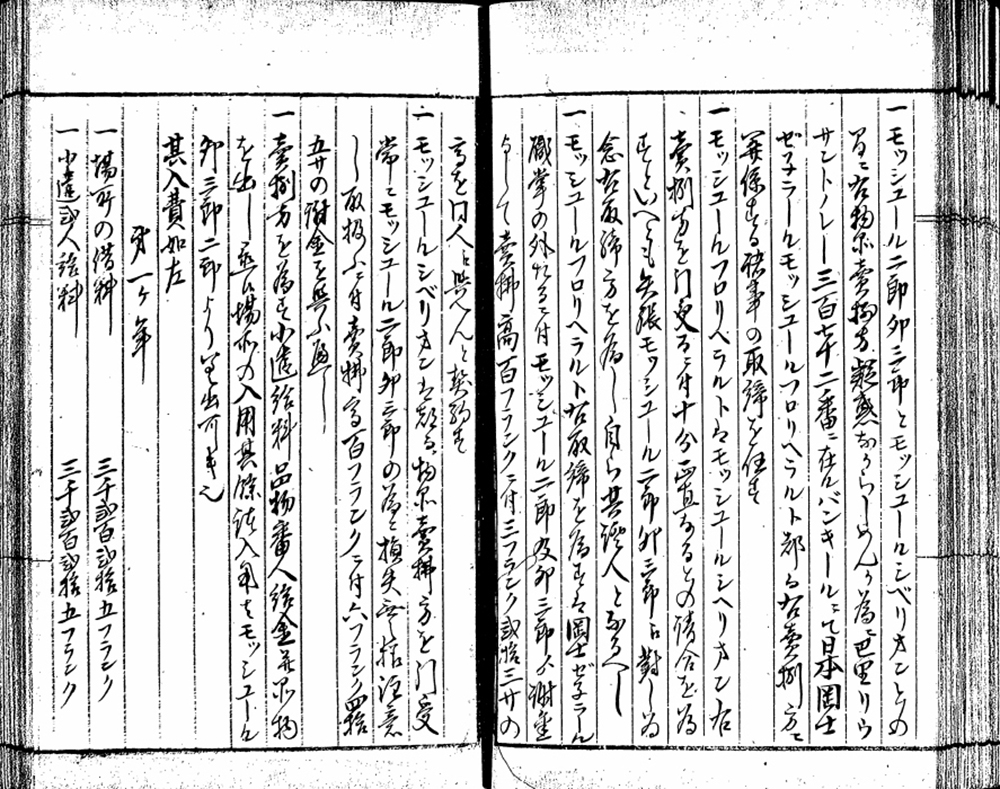 一モッシュール二郎卯三郎とモッシュールシベリオンとの
間に右物品売捌方疑惑なからしめんか為に巴里リウ
サントノレー三百七十二番に在るバンキールにて日本岡士
ゼネラールモッシュールフロリヘラルト郎る右売捌方に
関係する諸事の取締を任す
一モッシュールフロリヘラルトはモッシュールシヘリオン右
売捌方を門受るに付十分正直なるとの請合を為
すといへとも矢張モッシュール二郎卯三郎に対し為
念右取締方を為し自ら其証人となるへし
一モッシュールフロリヘラルト右取締を為すは岡士ゼネラール
職掌の外なるに付モッシュール二郎及卯三郎より謝金
として売捌高百フランクに付三フランク弐拾三サの
高を同人に与へんと契約す
一モッシュールシベリオンは都る物品売捌方を門受
常にモッシュール二郎卯三郎の為に損失無之様注意
し取扱ふに付売捌高百フランクに付六フランク四拾
五サの謝金を与ふ可し
一売捌方を為す小遣給料品物番人給金並品物
を出し並ふ場所の入用其余諸入用はモッシュール
卯三郎二郎より可差出
其入費如左
第一ケ年
一場所の借料 三千弐百弐拾五フランク
一小遣弐人給料 三千弐百弐拾五フランク